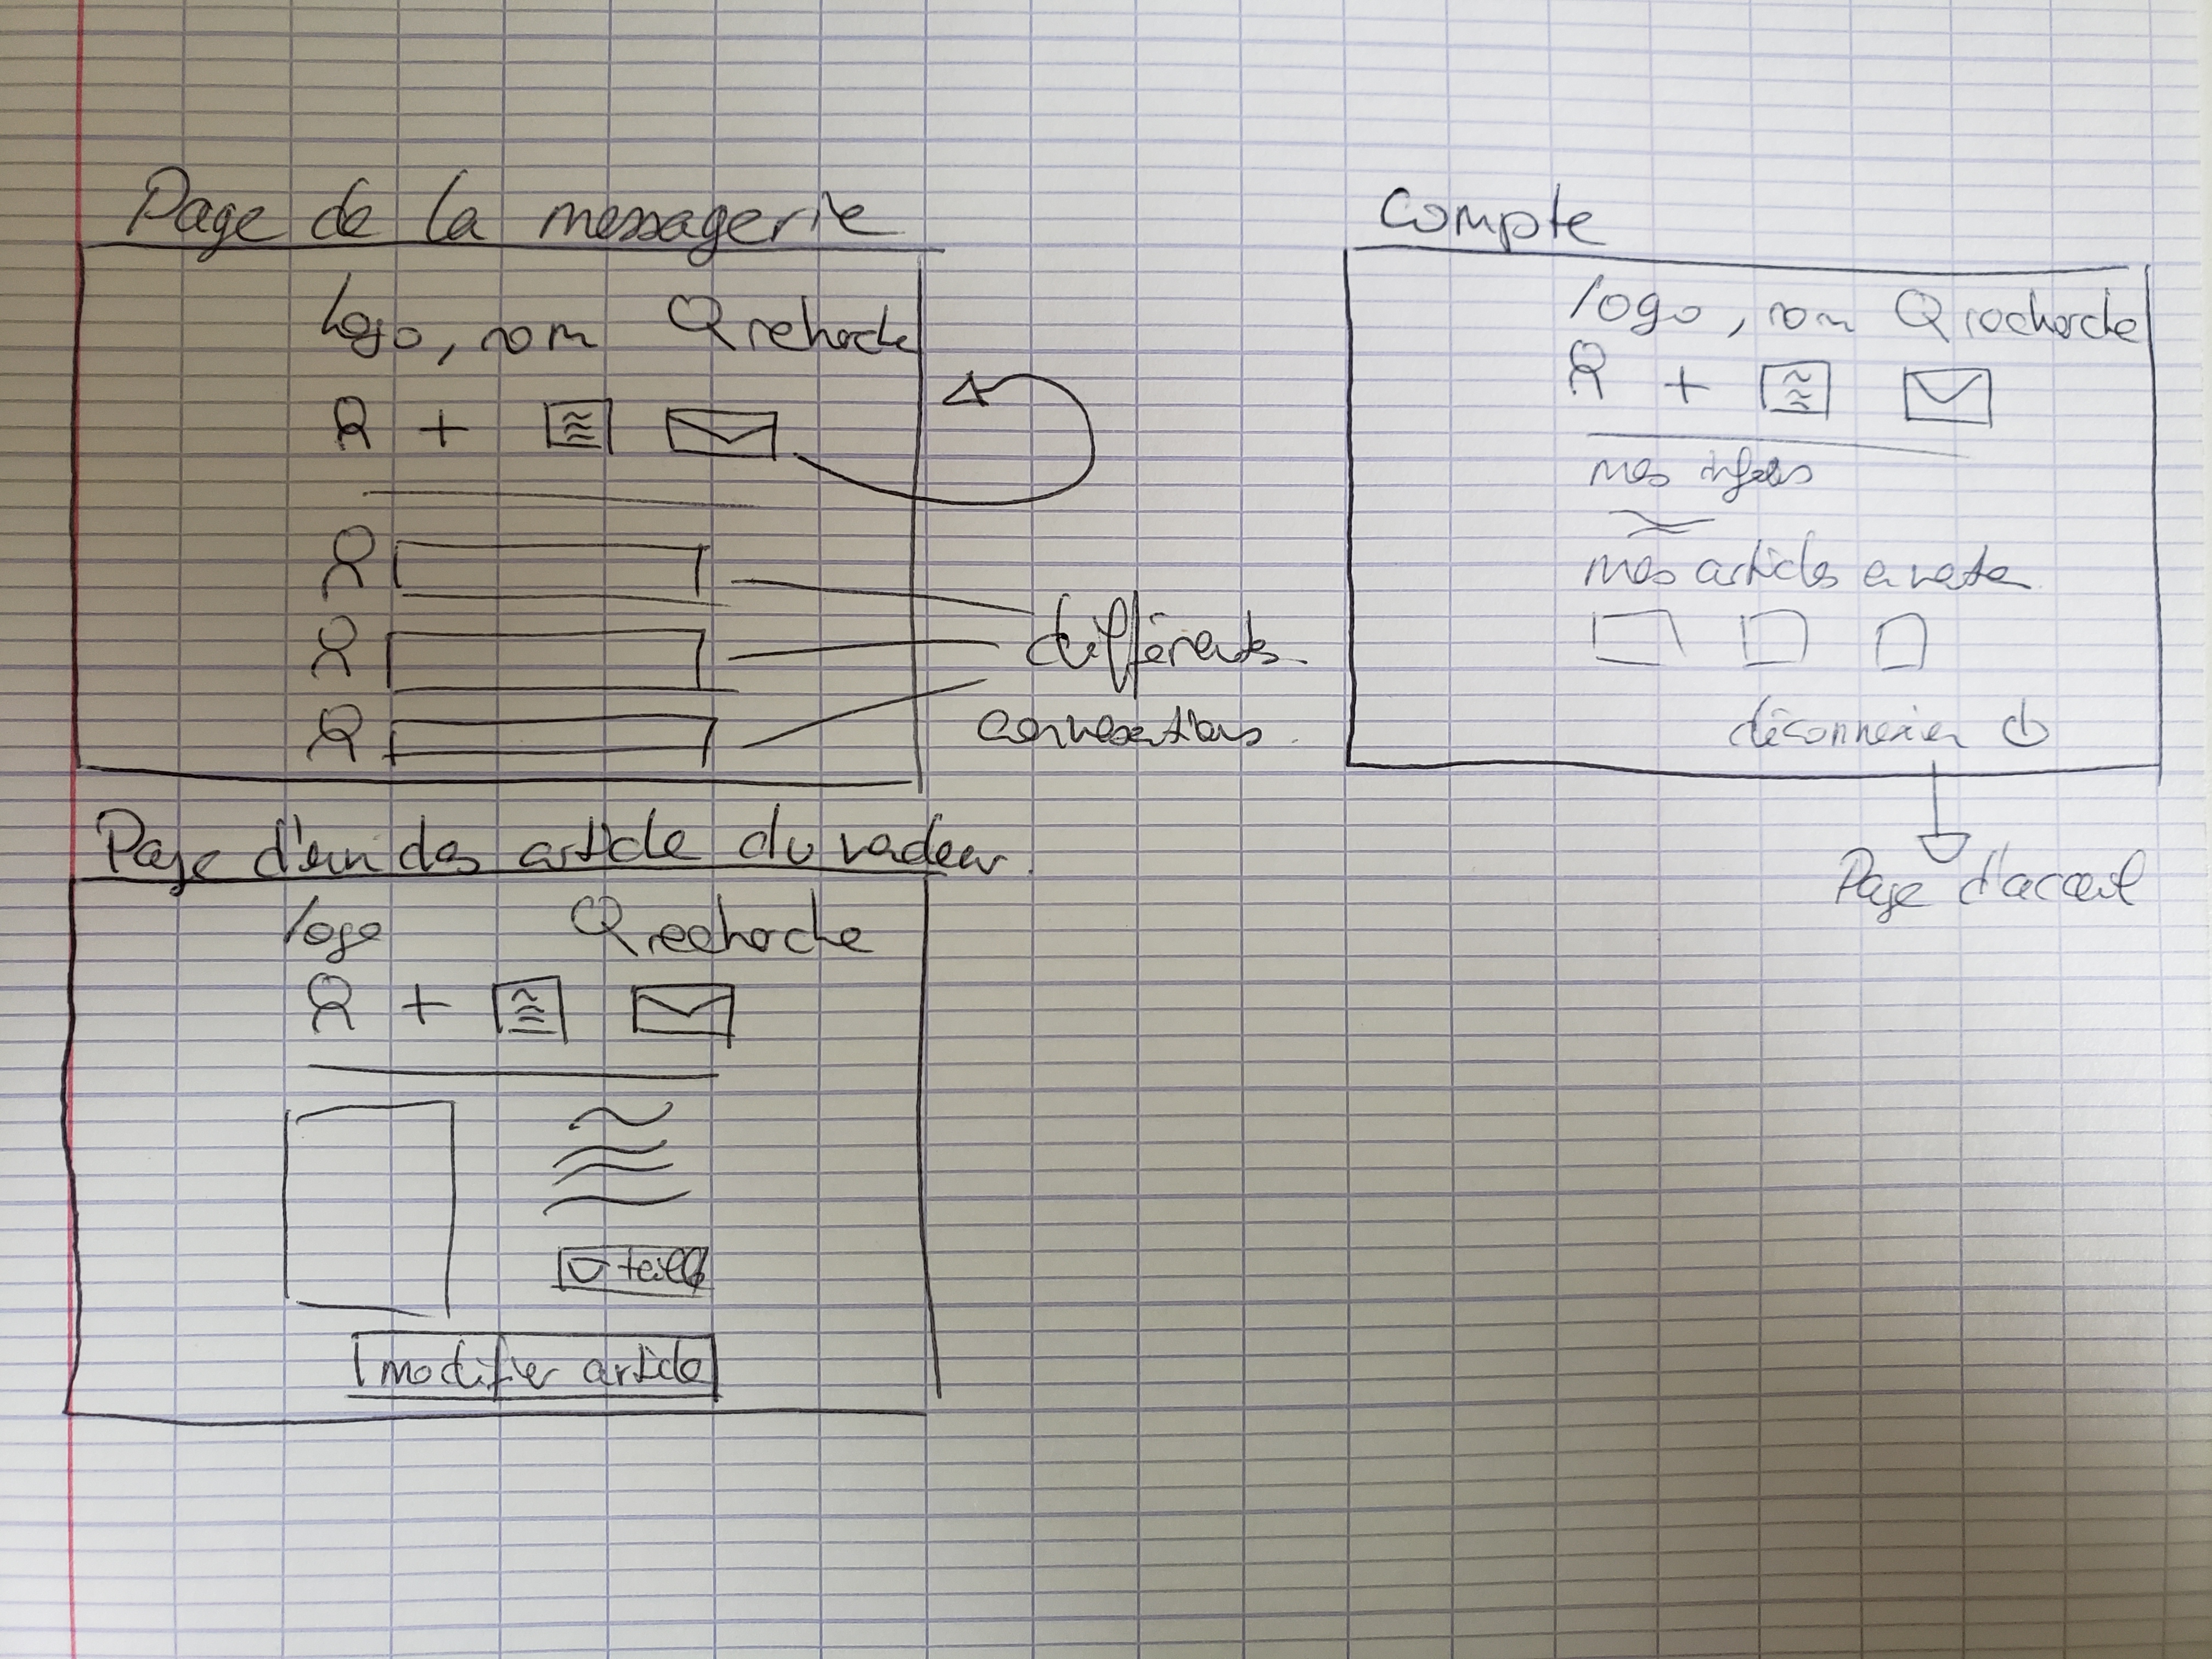 Page de la messagerie
logo, nom recherche
+
différents
conversations.
Compte
logo, nom recherche
+
mes infos
mes articles a vendre
déconnexion
Page d'accueil
Page d'un des article du vendeur.
logo recherche
+
modifier article